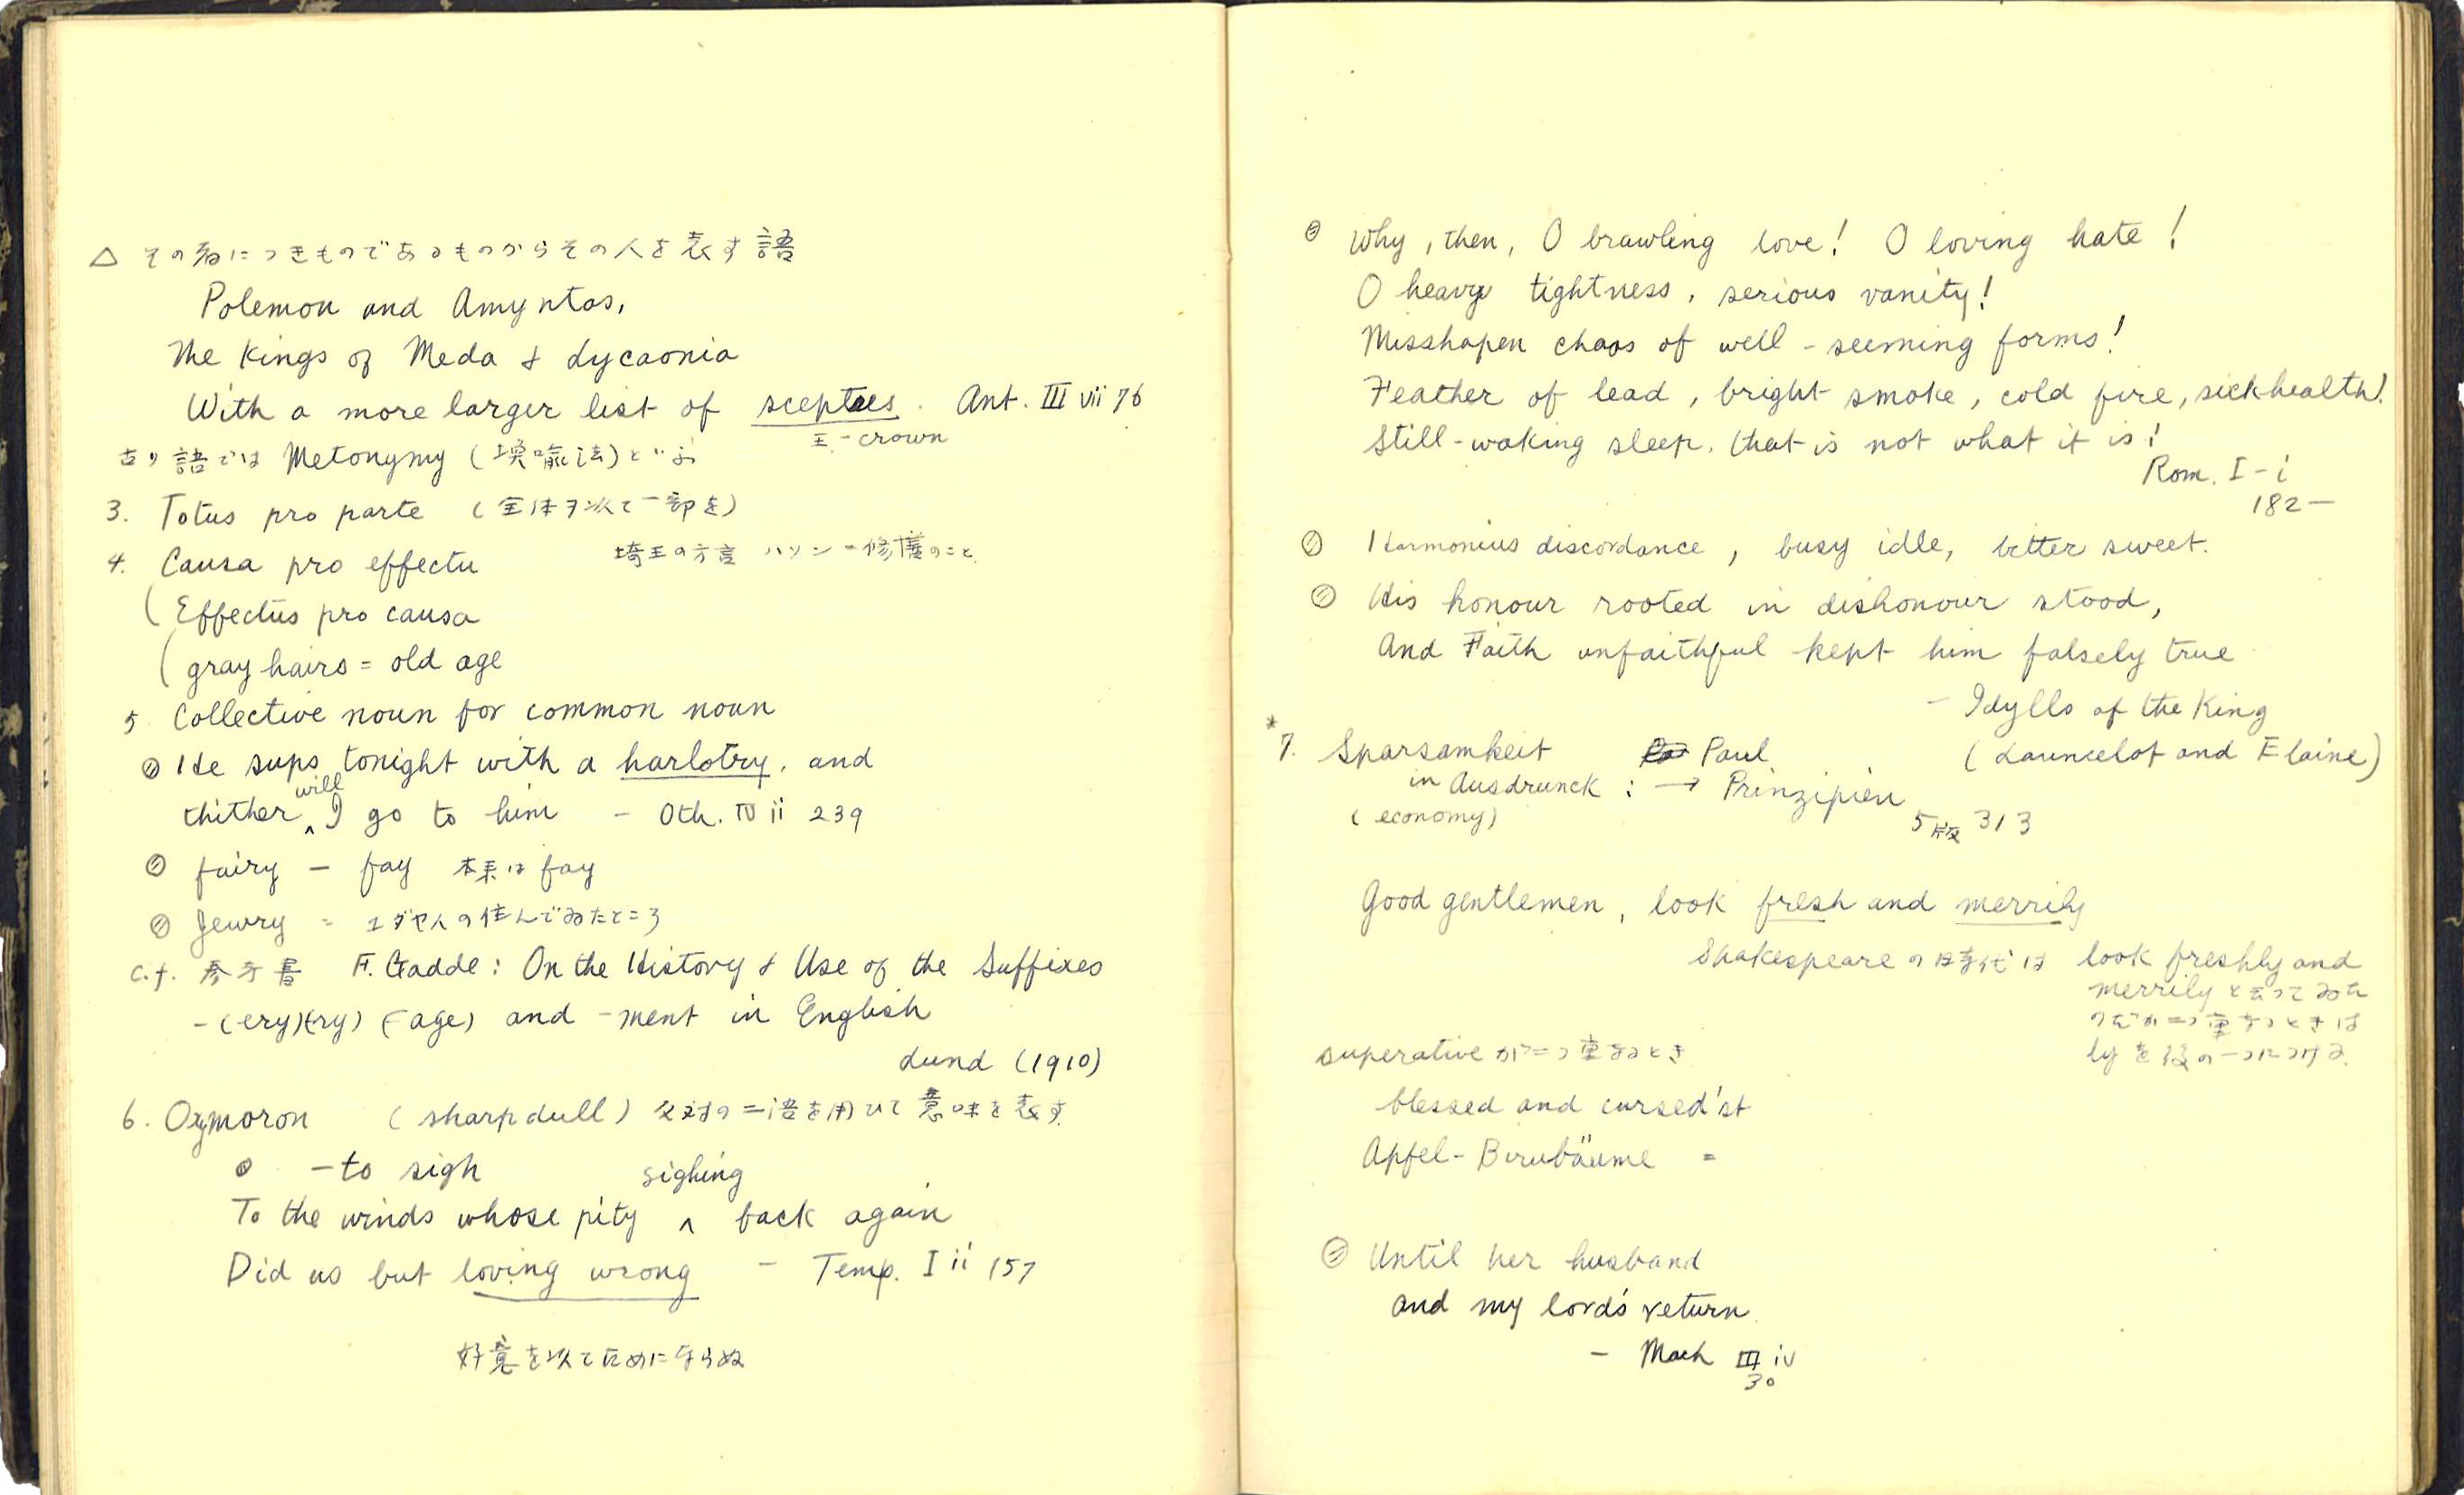 △ その為につきものであるものからその人を表す語
Polemon and Amyntas,
The Kings of Meda & Lycaonia
With a more larger list of sceptres. Ant. III vii 76
王-crown
古い語では Metonymy (換喩法)といふ
3. Totus pro parte (全体ヲ以て一部を)
4. Causa pro effectu 埼玉の方言 ハソン=修護のこと
(Effectus pro causa
(gray hairs = old age
5 Collective noun for common noun
He sups tonight with a harlotry, and
thither will I go to him - Oth. IV ii 239
fairy - fay 本来は fay
Jewry = ユダヤ人の住んでゐたところ
c.f. 参考書 F. Gadde: On the History & Use of the Suffixes
-(ery)(ry) (-age) and -ment in English
Lund (1910)
6. Oxymoron (sharp dull) 反対の二語を用ひて意味を表す.
-to sigh
To the winds whose pity sighing back again
Did us but loving wrong - Temp. I ii 157
好意を以てためにならぬ
Why, then, O brawling love! O loving hate!
O heavy tightness, serious vanity!
Misshapen chaos of well-seeming forms!
Feather of lead, bright smoke, cold fire, sick health!
Still-waking sleep, that is not what it is!
Rom. I-i
182-
Harmonius discordance, busy idle, bitter sweet.
His honour rooted in dishonour stood,
And Faith unfaithful kept him falsely true
- Idylls of the King
(Launcelot and Elaine)
* 7. Sparsamkeit Paul
in Ausdrunck : → Prinzipien
(economy) 5版 313
Good gentlemen, look fresh and merrily
Shakespeareの時代は look freshly and
merrily と云つてゐた
のだが二つ重なるときは
ly を後の一つにつける.
superative が二つ重なるとき
blessed and cursed'st
Apfel-Birubäume =
Until her husband
and my lord's return.
- Mach III iv
30